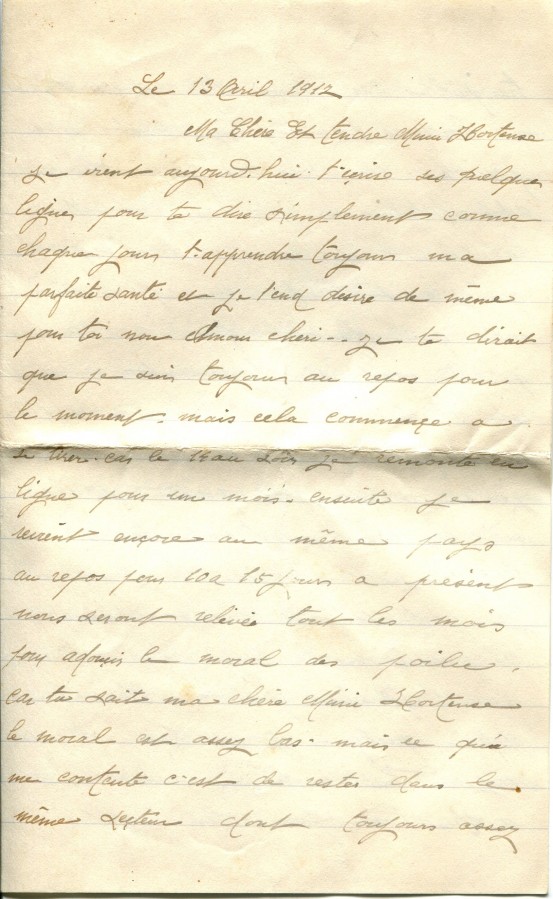 Le 13 Avril 1917
Ma Chère Et tendre Mimi Hortense
je vient aujourd.hui t'éçrire ses quelques
lignes pour te dire simplement comme
chaque jours t-apprendre toujours ma
parfaite santé et je t'end désire de même
pour toi mon Amour chéri-. je te dirait
que je suis toujours au repos pour
le moment. mais cela commençe a
se tirer. car le 14 au soir je remonte en
ligne pour un mois. ensuite je
revient ençore au même pays
au repos pour 10 a 15 jours a présent
nous seront relévée tout les mois
pour adouçir le moral des poilu,
car tu sait ma chère Mimi Hortense
le moral est assez bas. mais se qui
me contente c'est de rester dans le
même secteur dont toujours assez